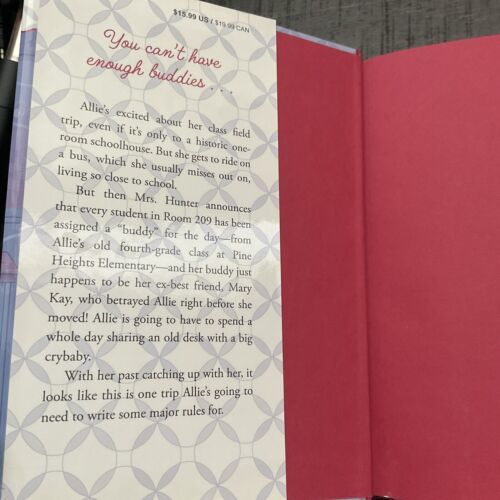 $15.99 US / $19.99 CAN
You can't have
enough buddies . . .
Allie's excited about her class field
trip, even if it's only to a historic one-
room schoolhouse. But she gets to ride on
a bus, which she usually misses out on,
living so close to school.
But then Mrs. Hunter announces
that every student in Room 209 has been
assigned a “buddy” for the day—from
Allie's old fourth-grade class at Pine
Heights Elementary—and her buddy just
happens to be her ex-best friend, Mary
Kay, who betrayed Allie right before she
moved! Allie is going to have to spend a
whole day sharing an old desk with a big
crybaby.
With her past catching up with her, it
looks like this is one trip Allie's going to
need to write some major rules for.